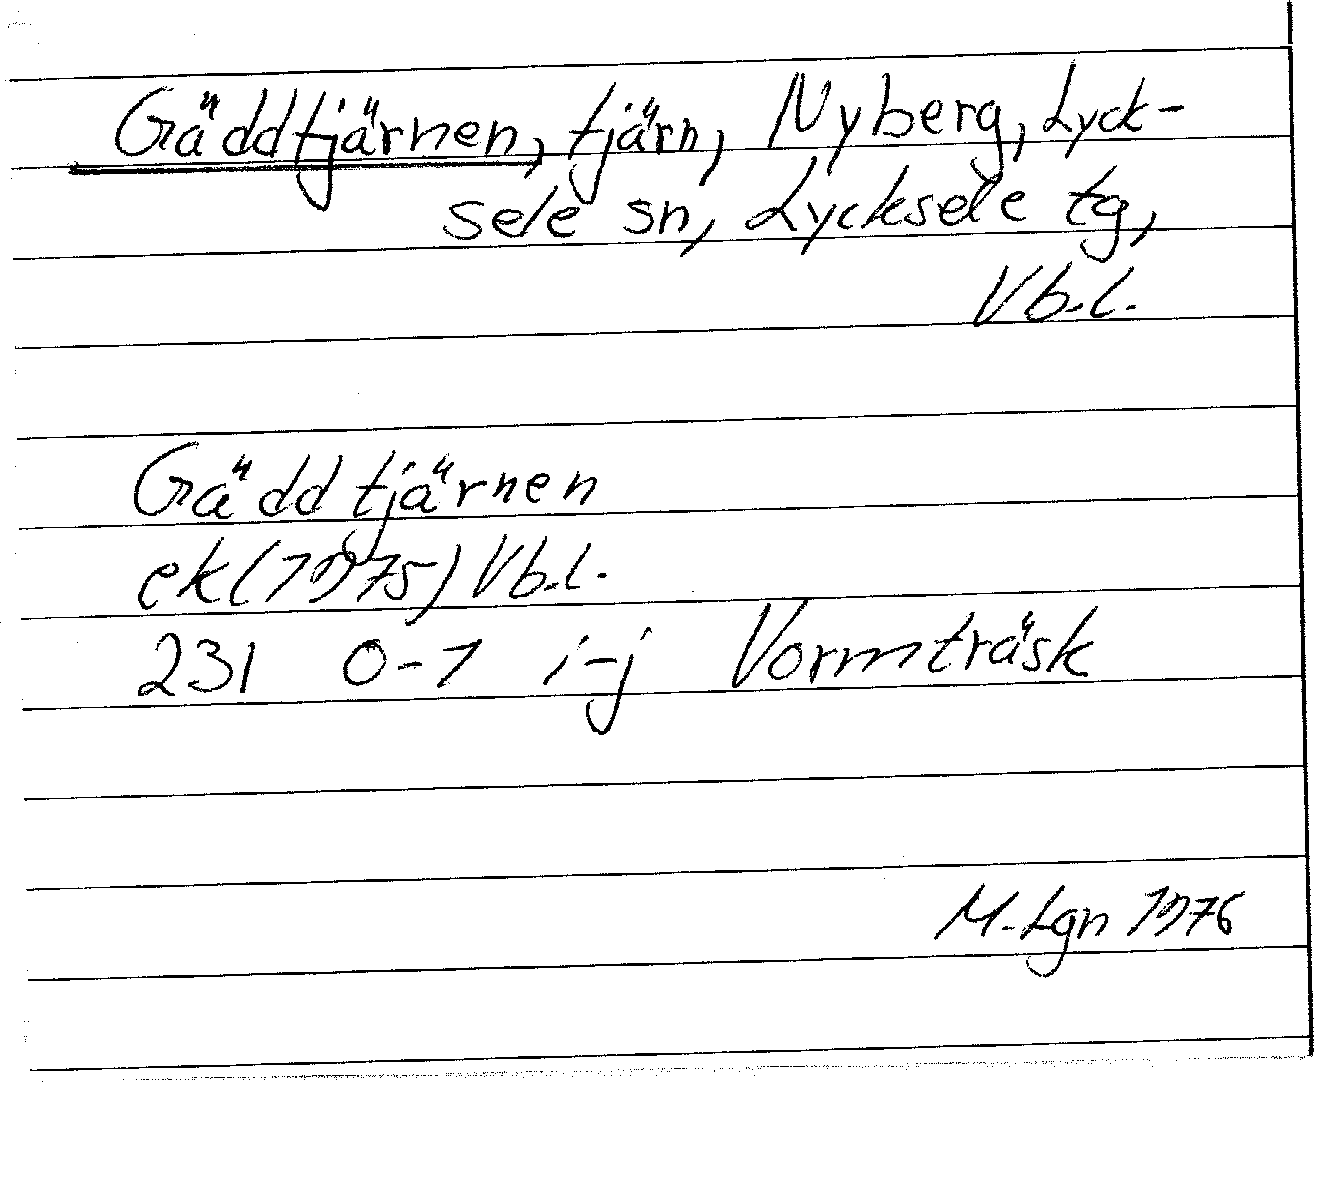 Gäddtjärnen, tjärn, Nyberg, Lyck-
sele sn, Lycksele tg,
Vb.l.
Gäddtjärnen
ek(1975) Vb.l.
231 0-1 i-j Vormträsk
M-Lgn 1976